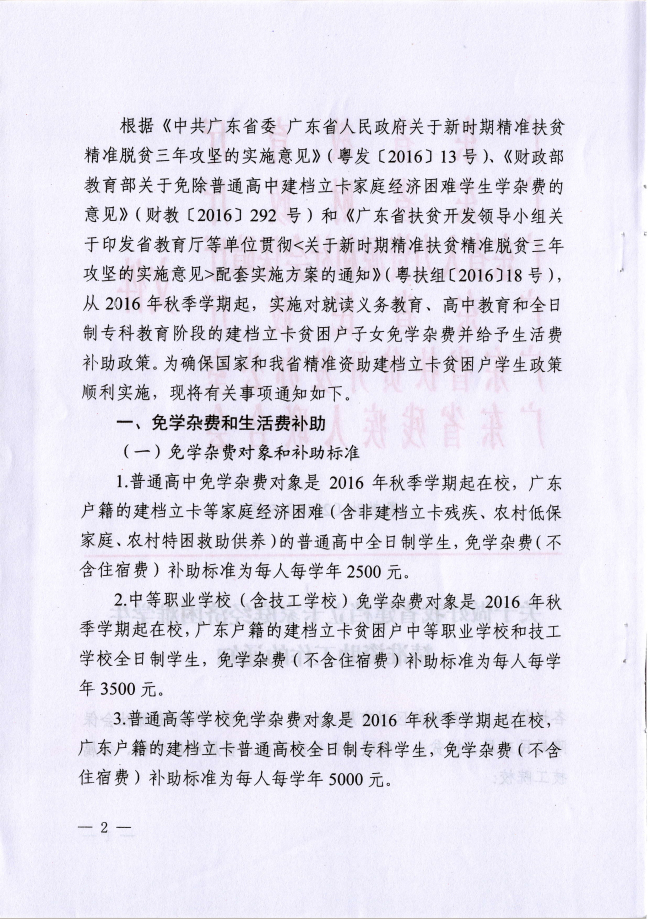 根据《中共广东省委 广东省人民政府关于新时期精准扶贫
精准脱贫三年攻坚的实施意见》（粤发〔2016〕13号）、《财政部
教育部关于免除普通高中建档立卡家庭经济困难学生学杂费的
意见》（财教〔2016〕292 号）和《广东省扶贫开发领导小组关
于印发省教育厅等单位贯彻<关于新时期精准扶贫精准脱贫三年
攻坚的实施意见>配套实施方案的通知》（粤扶组〔2016〕18号），
从 2016 年秋季学期起，实施对就读义务教育、高中教育和全日
制专科教育阶段的建档立卡贫困户子女免学杂费并给予生活费
补助政策。为确保国家和我省精准资助建档立卡贫困户学生政策
顺利实施，现将有关事项通知如下。
一、免学杂费和生活费补助
（一）免学杂费对象和补助标准
1.普通高中免学杂费对象是 2016 年秋季学期起在校，广东
户籍的建档立卡等家庭经济困难（含非建档立卡残疾、农村低保
家庭、农村特困救助供养）的普通高中全日制学生，免学杂费（不
含住宿费）补助标准为每人每学年 2500 元。
2.中等职业学校（含技工学校）免学杂费对象是 2016 年秋
季学期起在校，广东户籍的建档立卡贫困户中等职业学校和技工
学校全日制学生，免学杂费（不含住宿费）补助标准为每人每学
年 3500 元。
3.普通高等学校免学杂费对象是 2016 年秋季学期起在校，
广东户籍的建档立卡普通高校全日制专科学生，免学杂费（不含
住宿费）补助标准为每人每学年 5000 元。
— 2 —